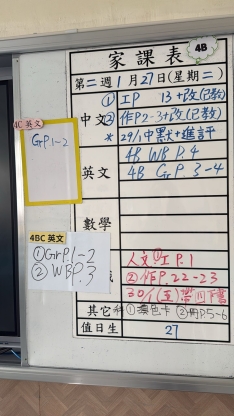 家課表
4B
第二週1月27日(星期二)
4C 英文
GrP.1-2
中文
① IP 13+改(已教)
② 作P.2-3+改(已教)
* 29/1中默+進評
英文
4B WB P.4
4B Gr P.3-4
數學
4BC 英文
① Gr P1-2
② WB P.3
人文①工P.1
②作P.22-23
30/1(五)帶回
其它 科①漂色卡 ②冊P.5-6
值日生
27